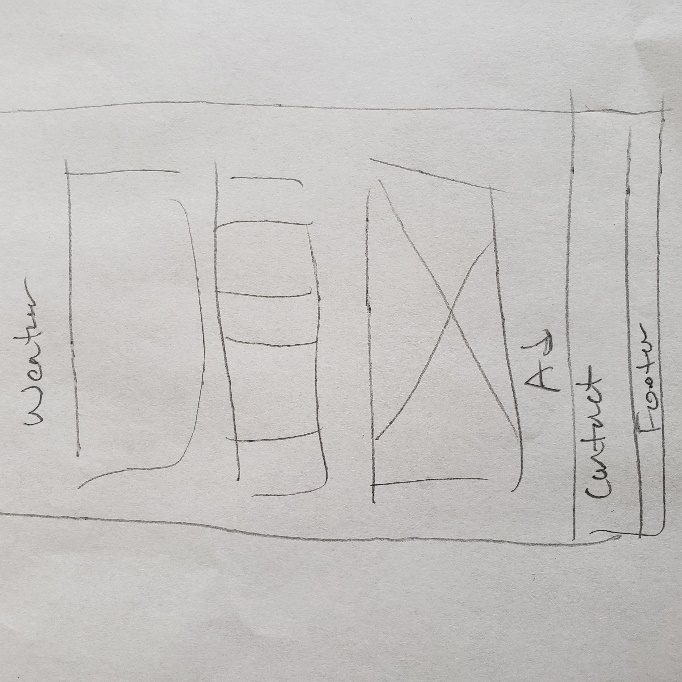 Weather
Ad
Contact
Footer